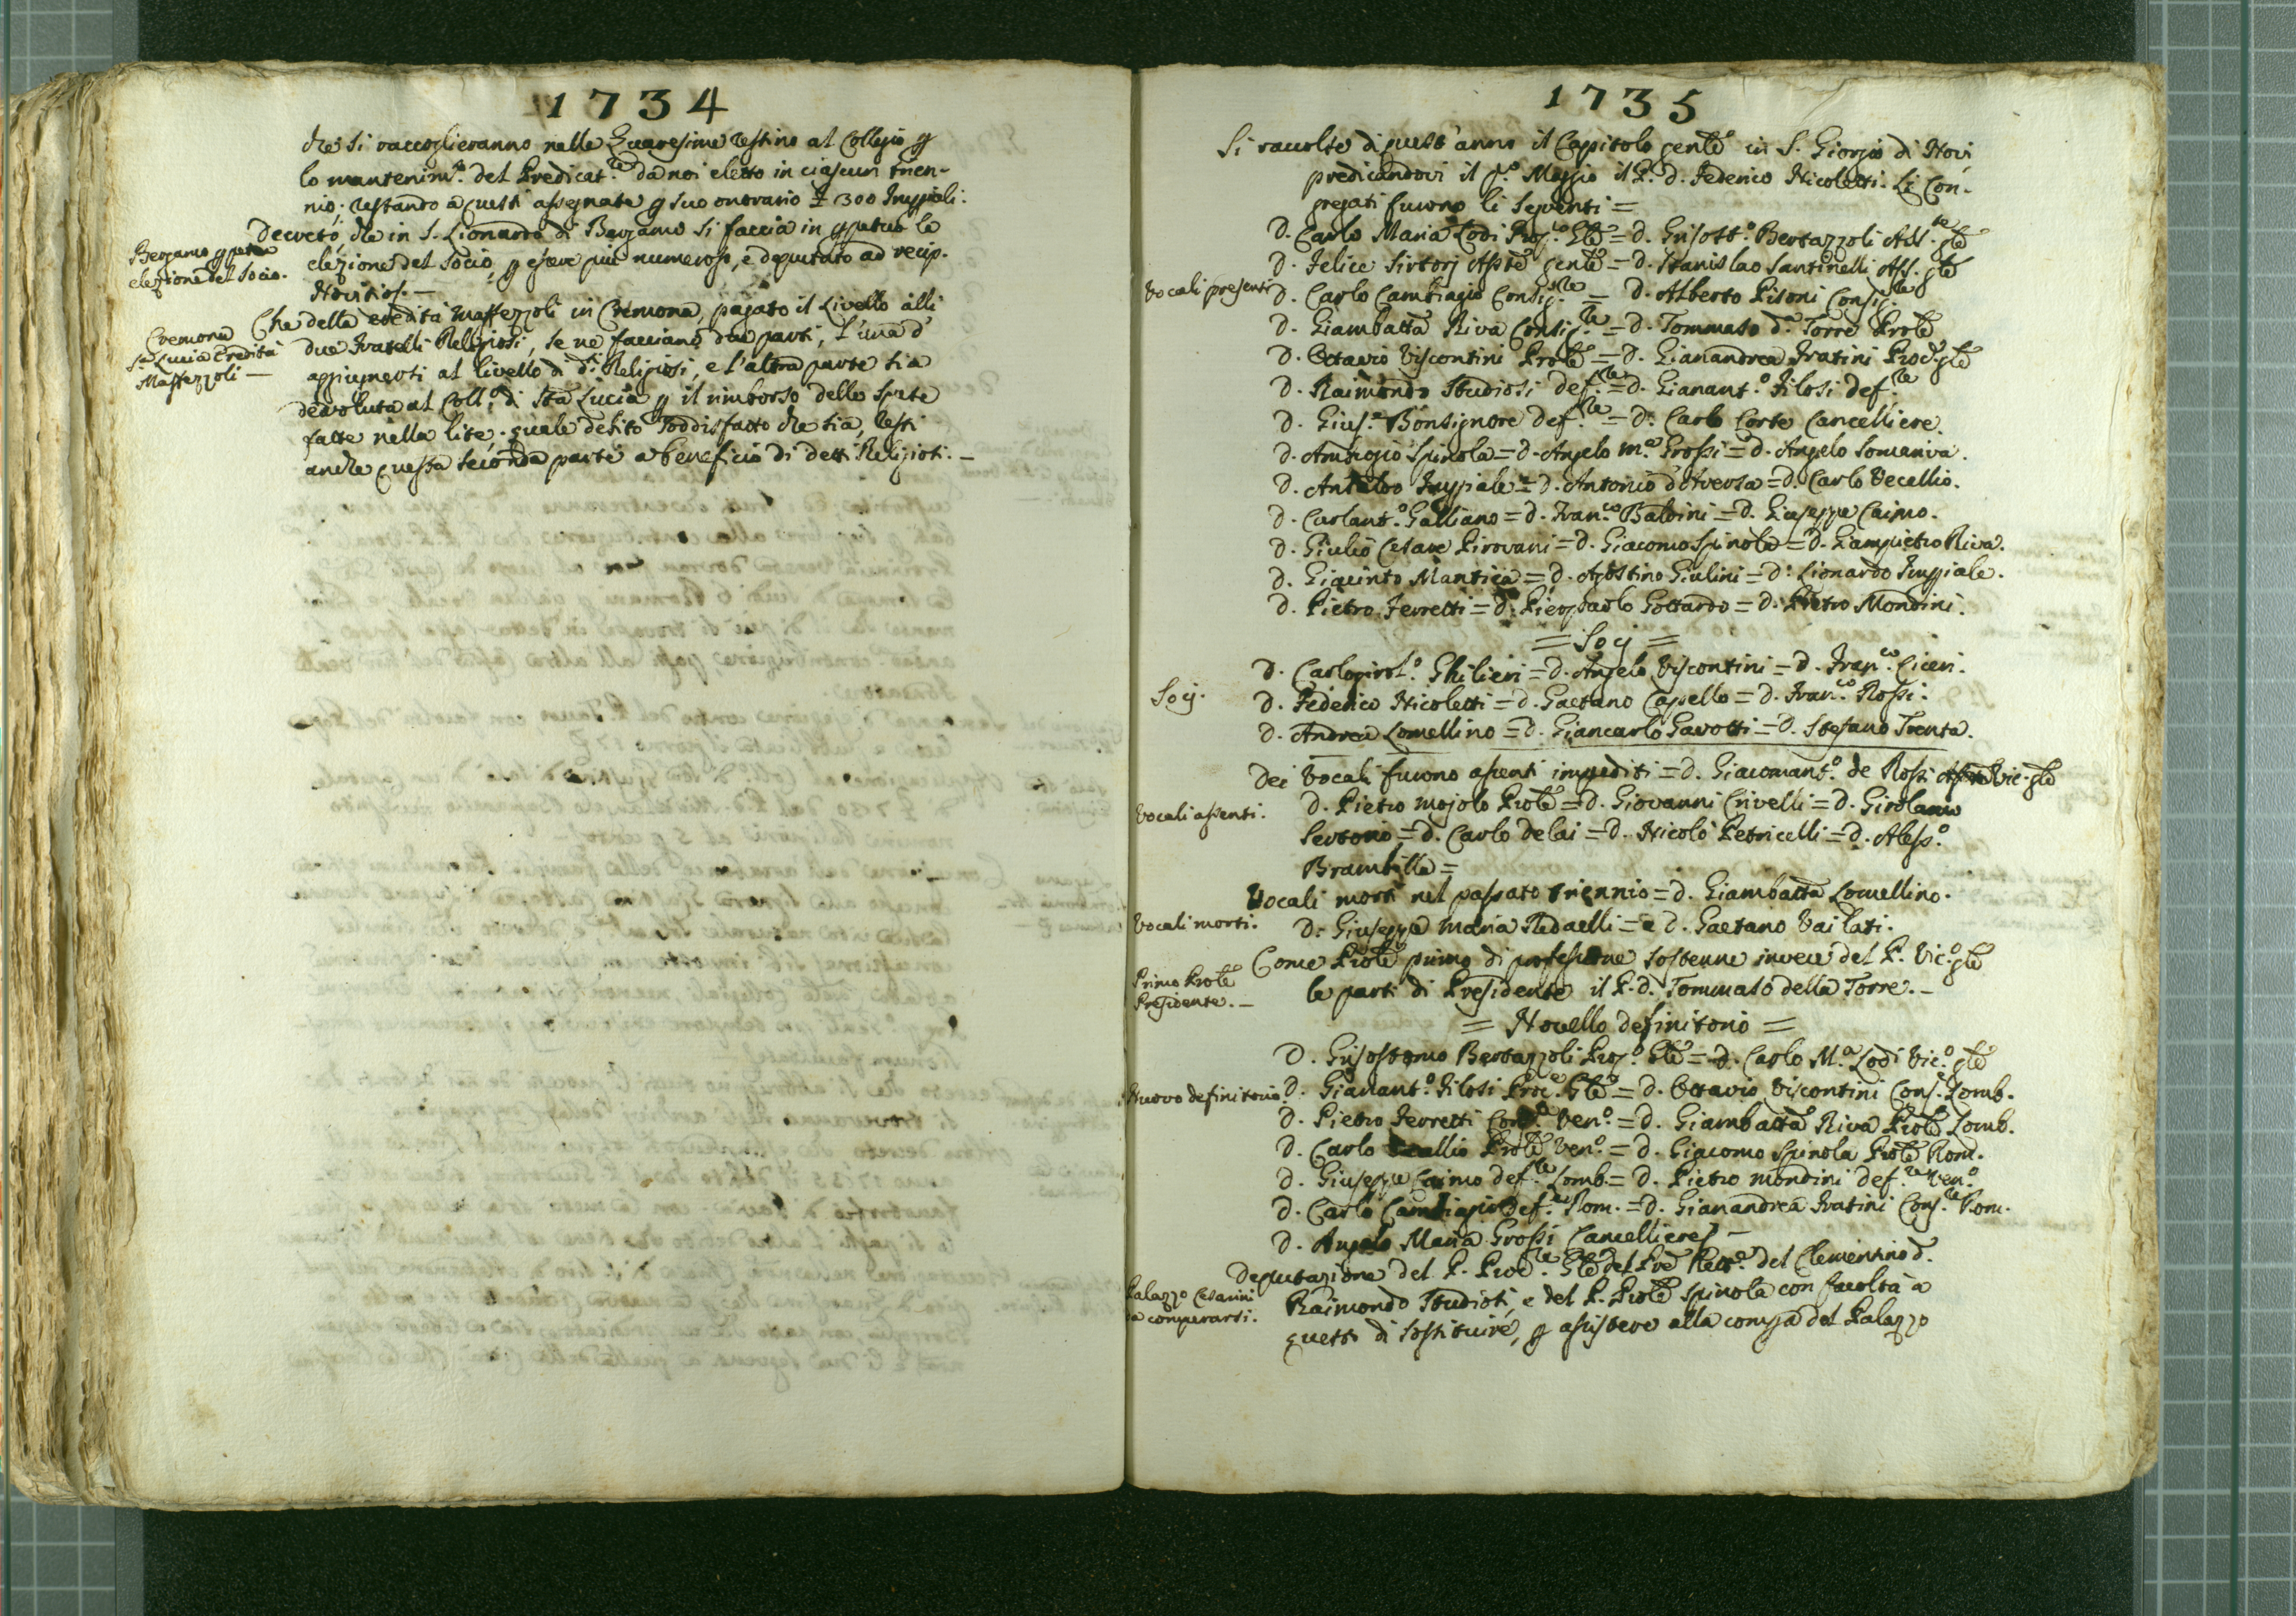 1734
che si raccoglieranno nelle Quaresime restino al Collegio p
lo mantenim.to del Predicat.re da noi eletto in ciascun trien-
nio; restando a questi assegnate p suo onorario £ 300 Impiali.
Bergamo p
elezione del Socio.
Decretò, che in S. Lionardo di Bergamo si faccia in ppetuo la
elezione del Socio, p essere più numeroso, e deputato ad recip.
Novitios. —
Cremona
S.a Lucia Eredità
Maffezzoli —
Che della eredità Maffezzoli in Cremona, pagato il Livello alli
due Fratelli Religiosi, se ne facciano due parti, l'una d'
aggiugnersi al livello di d.ti Religiosi, e l'altra parte sia
devoluta al Coll.o di Sta Lucia p il rimborso delle spese
fatte nella lite; quale debito soddisfatto che sia, resti
anche questa seconda parte a beneficio di detti Religiosi. —
1735
Si raccolse di quest'anno il Capitolo genle in S. Giorgio di Novi
predicandovi il p.o Maggio il P. d. Federico Nicoletti. Li Con-
gregati furono li seguenti =
D. Carlo Maria Lodi Prop.o Gle = D. Grisost.o Bertazzoli Ass.te gle
D. Felice Sirtorj Asste genle = D. Stanislao Santinelli Ass. gle
Vocali presenti
D. Carlo Cambiagio Consig.re = D. Alberto Pisoni Consig.re
D. Giambatta Riva Consig.re = D. Tommaso d.a Torre Prole
D. Ottavio Viscontini Prole = D. Gianandrea Fratini Proc.e gle
D. Raimondo Studiosi def.re = D. Gianant.o Filosi def.re
D. Gius.e Bonsignore def.re = D. Carlo Corte Cancelliere.
D. Ambrogio Spinola = D. Angelo M.a Grossi = D. Angelo Somariva.
D. Ansaldo Impiale = D. Antonio d'Aversa = D. Carlo Vecellio.
D. Carlant.o Galliano = D. Fran.co Baldini = D. Giuseppe Caimo.
D. Giulio Cesare Pirovani = D. Giacomo Spinola = D. Giampietro Riva.
D. Giacinto Mantica = D. Agostino Giulini = D. Lionardo Impiale.
D. Pietro Ferretti = D. Pierpaolo Gottardo = D. Pietro Mondini.
= Socj =
D. Carlogirol.o Ghilieri = D. Angelo Viscontini = D. Fran.co Ciceri.
Socj.
D. Federico Nicoletti = D. Gaetano Capello = D. Fran.co Rossi.
D. Andrea Lomellino = D. Giancarlo Gavotti = D. Stefano Trenta.
Dei Vocali furono assenti impediti = D. Giacomant.o de Rossi Vic. gle
Vocali assenti.
D. Pietro Mojolo Prole = D. Giovanni Crivelli = D. Girolamo
Sertorio = D. Carlo Delai = D. Nicolò Petricelli = D. Aless.o
Brambilla =
Vocali morti nel passato triennio = D. Giambatta Lomellino.
Vocali morti.
D. Giuseppe Maria Redaelli = e D. Gaetano Vailati.
Primo Prole
Presidente. —
Come Prole primo di professione sostenne invece del P. Vic.o gle
le parti di Presidente il P. d. Tommaso della Torre. —
= Novello definitorio =
D. Grisostomo Bertazzoli Prop.o Gle = D. Carlo M.a Lodi Vic.o gle
Nuovo definitorio
D. Gianant.o Filosi Proc.e Gle = D. Ottavio Viscontini Cons.e Lomb.
D. Pietro Ferretti Ven.o = D. Giambatta Riva Prole Lomb.
D. Carlo Prole Ven.o = D. Giacomo Spinola Prole Rom.
D. Giuseppe Caimo def.re Lomb. = D. Pietro Mondini def.re Ven.o
D. Carlo Cambiagio def.re Rom. = D. Gianandrea Fratini Cons.re Rom.
D. Angelo Maria Grossi Cancelliere —
Palazzo Cesarini
da comperarsi.
Deputazione del P. Proc.re Gle del Pre Rett.e del Clementino D.
Raimondo Studiosi, e del P. Prole Spinola con facoltà a
questi di sostituire, p assistere alla compra del Palazzo